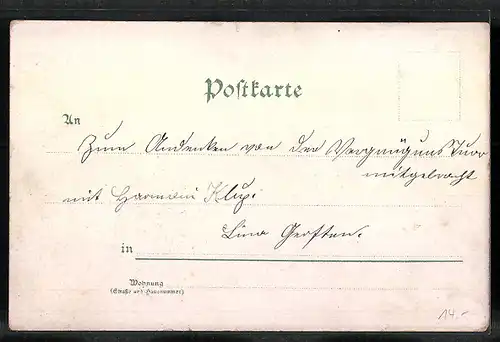 Postkarte
An
Zum Andenken von der Vergnügungs Tour
mitgebracht
mit Harmonie Klup.
Lina Gerften.
in
Wohnung
(Straße und Hausnummer)
14.-